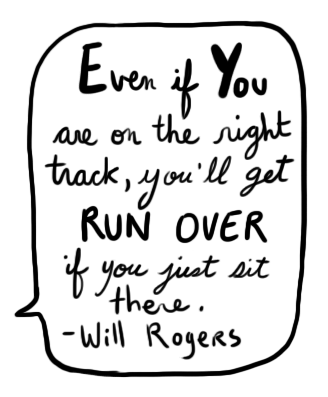 Even if You
are on the right
track, you'll get
RUN OVER
if you just sit
there.
-Will Rogers